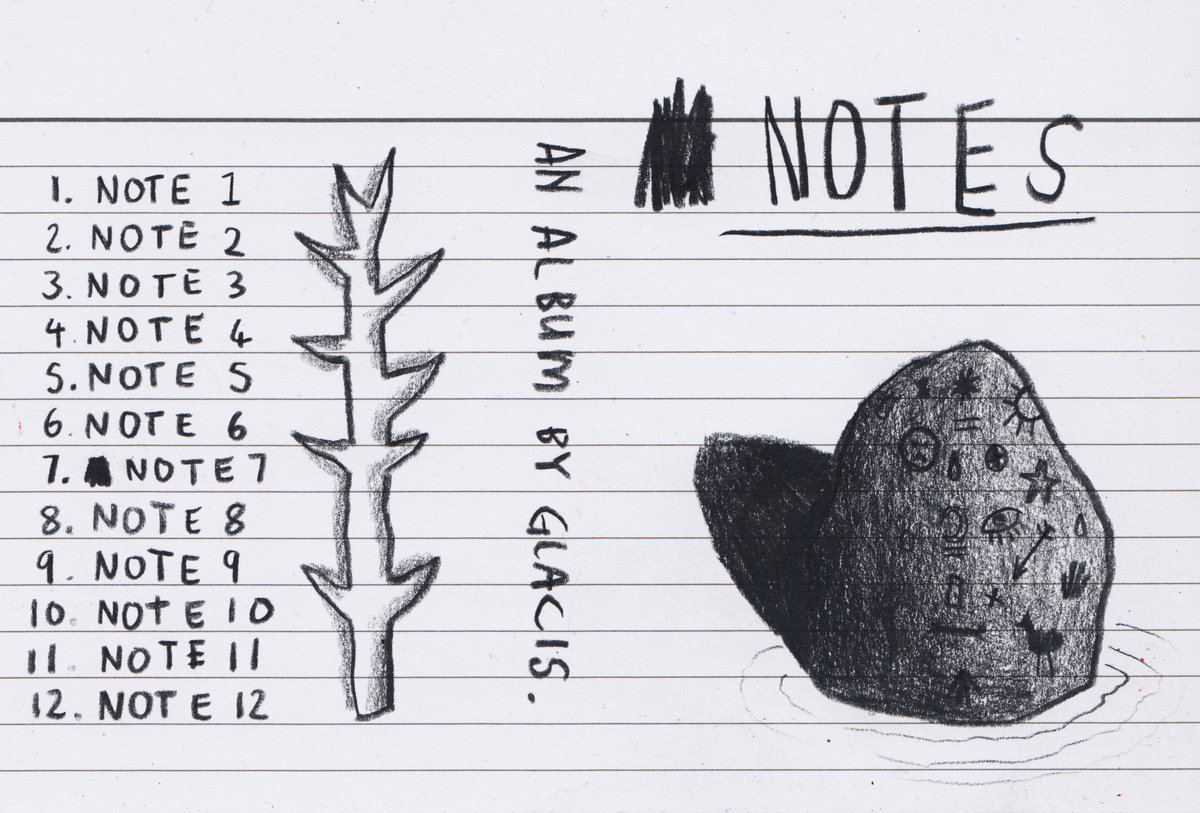 1. NOTE 1
2. NOTE 2
3. NOTE 3
4. NOTE 4
5. NOTE 5
6. NOTE 6
7. NOTE 7
8. NOTE 8
9. NOTE 9
10. NOTE 10
11. NOTE 11
12. NOTE 12
AN ALBUM BY GLACIS.
NOTES